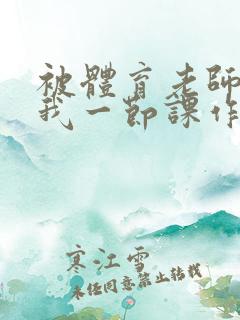 被體育老師
我一節課作
寒江雪
未经同意禁止转载